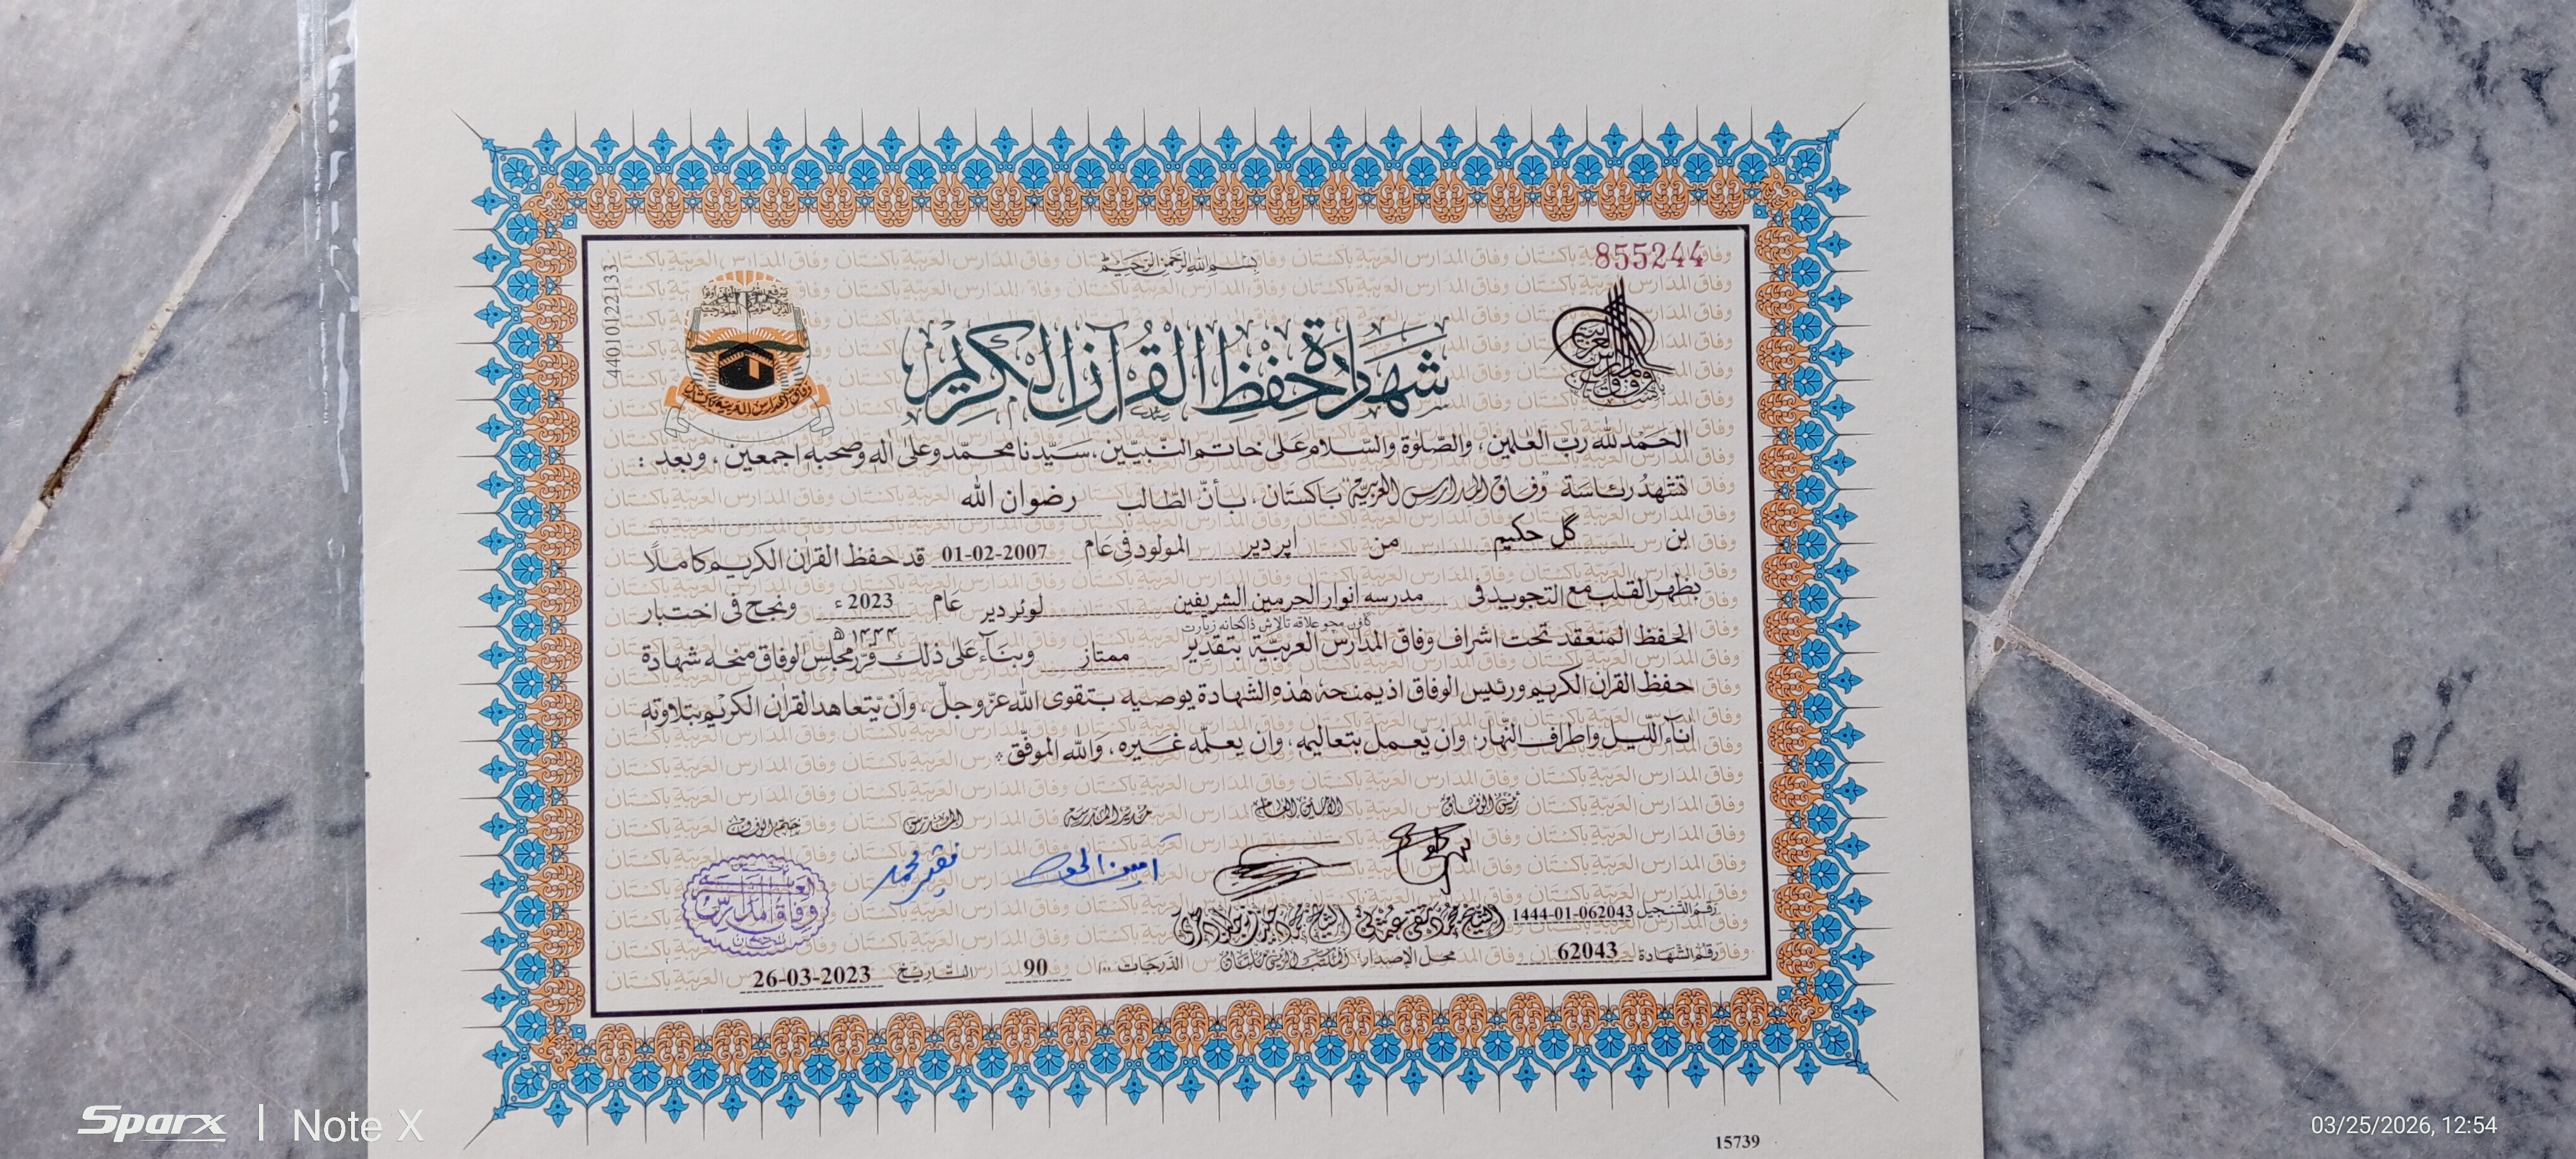 855244
بسم الله الرحمن الرحيم
44010122133
وفاق المدارس العربية پاكستان
شهادة حفظ القرآن الكريم
الحمد لله ربّ العٰلمين، والصّلوٰة والسّلام على خاتم النّبيّين، سيّدنا محمّد وعلىٰ اٰله وصحبه اجمعين، وبعد:
تشهد رئاسة "وفاق المدارس العربيّة" باكستان، بأنّ الطّالب رضوان الله
بن گل حكيم من اپر دير المولود في عام 01-02-2007 قد حفظ القراٰن الكريم كاملًا
بظهر القلب مع التجويد في مدرسه انوار الحرمين الشريفين لوئر دير عام 2023ء ونجح في اختبار
گاؤں مچو علاقه تالاش ڈاكخانه زيارت
١٤٤٤ھ
الحفظ المنعقد تحت اشراف وفاق المدارس العربيّة بتقدير ممتاز وبناءً على ذلك قرّر مجلس الوفاق منحه شهادة
حفظ القراٰن الكريم ورئيس الوفاق اذ يمنحه هٰذه الشهادة يوصيه بتقوى الله عزّ وجلّ، وأن يّتعاهد القراٰن الكريم بتلاوته
اٰناء اللّيل واطراف النّهار، وان يّعمل بتعاليمه، وان يعلّمه غيره، والله الموفّق
رئيس الوفاق الامين العام مدير المدرسة المدرس خاتم الوفاق
امين الحق
فقير محمد
الشيخ محمد تقي عثماني
رقم التسجيل 1444-01-062043
رقم الشهادة 62043 محل الإصدار: المكتب الرئيسي ملتان الدرجات 90 التاريخ 26-03-2023
15739
Sparx | Note X
03/25/2026, 12:54